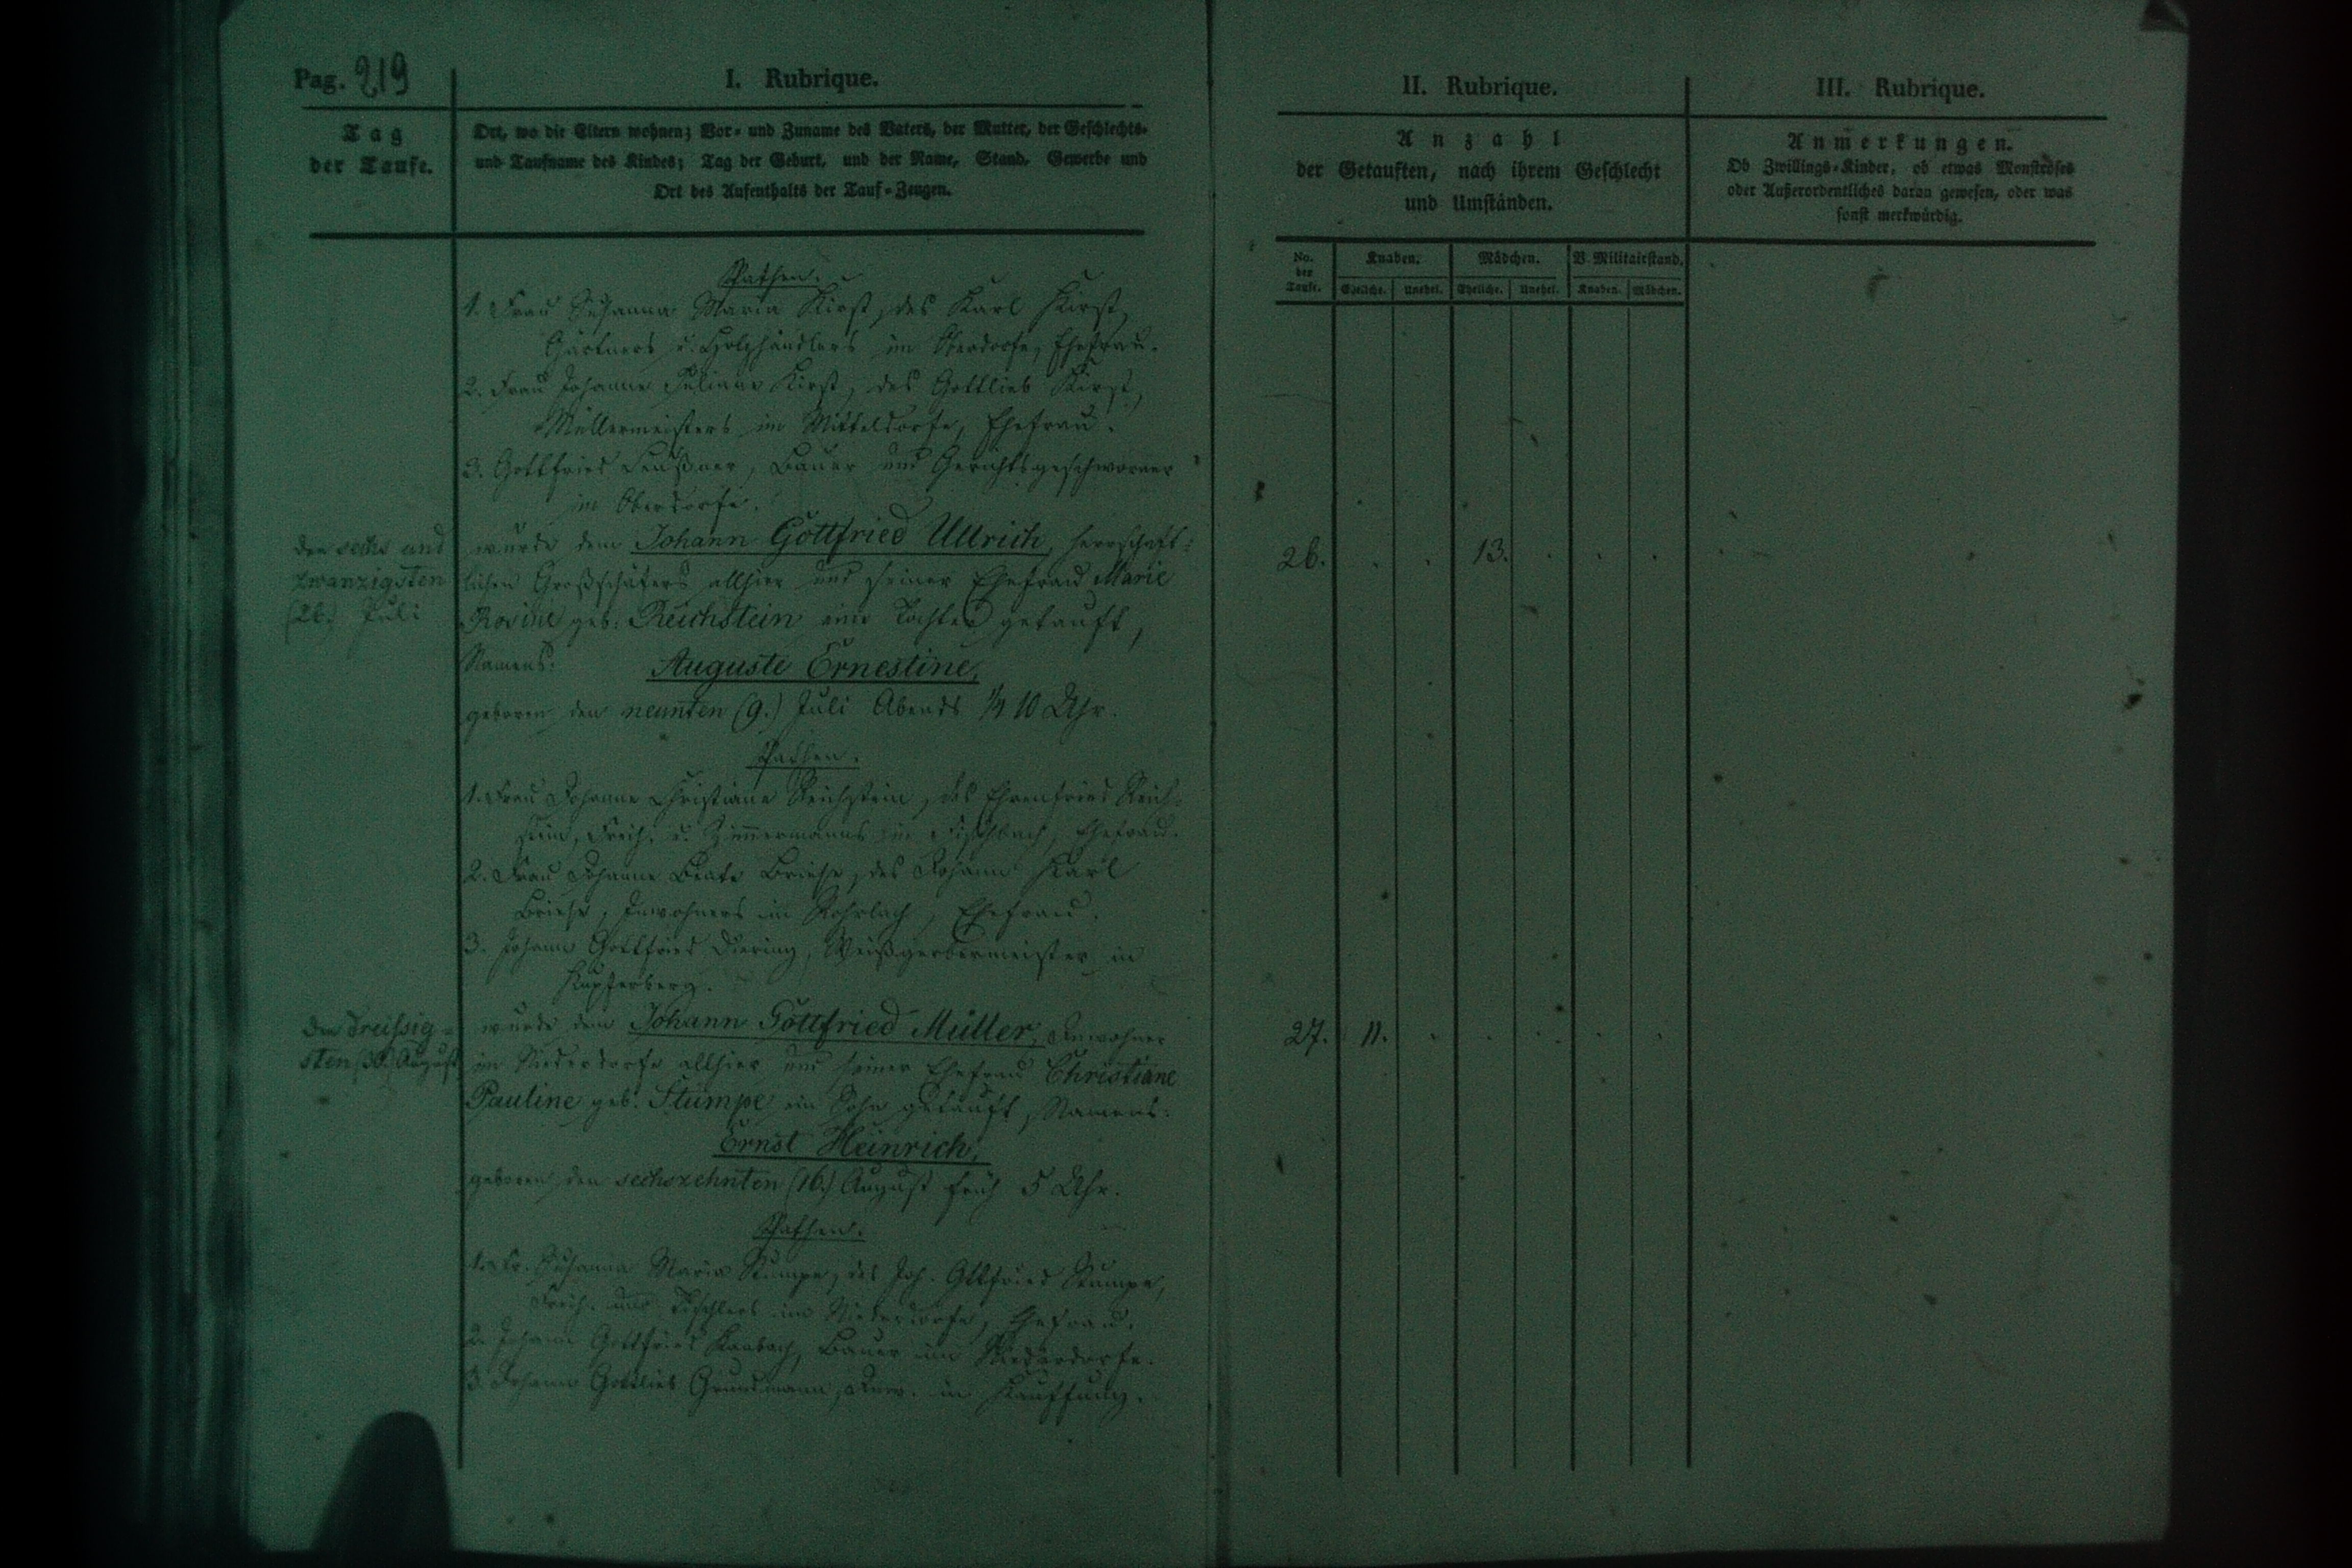 Pag. 219
I. Rubrique.
Tag
der Taufe.
Ort, wo die Eltern wohnen; Vor- und Zuname des Vaters, der Mutter, der Geschlechts-
und Taufname des Kindes; Tag der Geburt, und der Name, Stand, Gewerbe und
Ort des Aufenthalts der Tauf-Zeugen.
Pathen.
1. Frau Susanna Maria Kirst, des Karl Kirst,
Gärtners u. Holzhändlers im Oberdorfe, Ehefrau.
2. Frau Johanne Juliane Kirst, des Gottlieb Kirst,
Müllermeisters im Mitteldorfe, Ehefrau.
3. Gottfried, Bauer und Gerichtsgeschworner
im Oberdorfe.
den sechs und
zwanzigsten
(26.) Juli
wurde dem Johann Gottfried Ullrich, herrschaft-
lichen Großschäfers allhier und seiner Ehefrau Marie
Rosine geb. Reichstein eine Tochter getauft,
Namens:
Auguste Ernestine,
geboren den neunten (9.) Juli Abends 1/4 10 Uhr.
Pathen.
1. Frau Johanne Christiane Reichstein, des Ehrenfried Reich-
stein, Freih. u. Zimmermanns in Fischbach, Ehefrau.
2. Frau Johanne Beate Briese, des Johann Karl
Briese, Inwohners in Rohrlach, Ehefrau.
3. Johann Gottfried Diering, Weißgerbermeister in
Kupferberg.
den dreissig-
sten (30.) August
wurde dem Johann Gottfried Müller, Inwohner
im Niederdorfe allhier und seiner Ehefrau Christiane
Pauline geb. Stumpe ein Sohn getauft, Namens:
Ernst Heinrich,
geboren den sechszehnten (16.) August früh 5 Uhr.
Pathen.
1. Fr. Susanna Maria Stumpe, des Joh. Gttfried Stumpe,
Freih. und Tischlers im Niederdorfe, Ehefrau.
2. Johann Gottfried Raabach, Bauer im Niederdorfe.
3. Johann Gottlieb Grundmann, Inw. in Kauffung.
II. Rubrique.
Anzahl
der Getauften, nach ihrem Geschlecht
und Umständen.
No. der Taufe.
Knaben.
Mädchen.
V. Militairstand.
Eheliche. Unehel. Eheliche. Unehel. Knaben. Mädchen.
26. . . 13. . . .
27. 11. . . . . .
III. Rubrique.
Anmerkungen.
Ob Zwillings-Kinder, ob etwas Monströses
oder Außerordentliches daran gewesen, oder was
sonst merkwürdig.